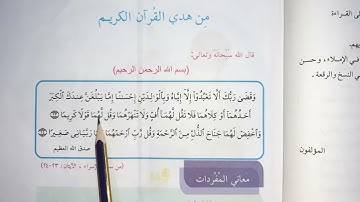 مِن هدي القُرآن الكريـم
قال الله سُبْحانَهُ وتعالى:
(بسم الله الرحمن الرحيم)
وَقَضَىٰ رَبُّكَ أَلَّا تَعْبُدُوٓا۟ إِلَّآ إِيَّاهُ وَبِٱلْوَٰلِدَيْنِ إِحْسَٰنًا إِمَّا يَبْلُغَنَّ عِندَكَ ٱلْكِبَرَ
أَحَدُهُمَآ أَوْ كِلَاهُمَا فَلَا تَقُل لَّهُمَآ أُفٍّ وَلَا تَنْهَرْهُمَا وَقُل لَّهُمَا قَوْلًا كَرِيمًا ٢٣
وَٱخْفِضْ لَهُمَا جَنَاحَ ٱلذُّلِّ مِنَ ٱلرَّحْمَةِ وَقُل رَّبِّ ٱرْحَمْهُمَا كَمَا رَبَّيَانِى صَغِيرًا ٢٤
صدق الله العظيم
الإسراء - الآيتان: ٢٣-٢٤)
معاني المُفْرَدات
القراءة
في الإملاء، وحسن
النسخ والرقعة.
المؤلفون